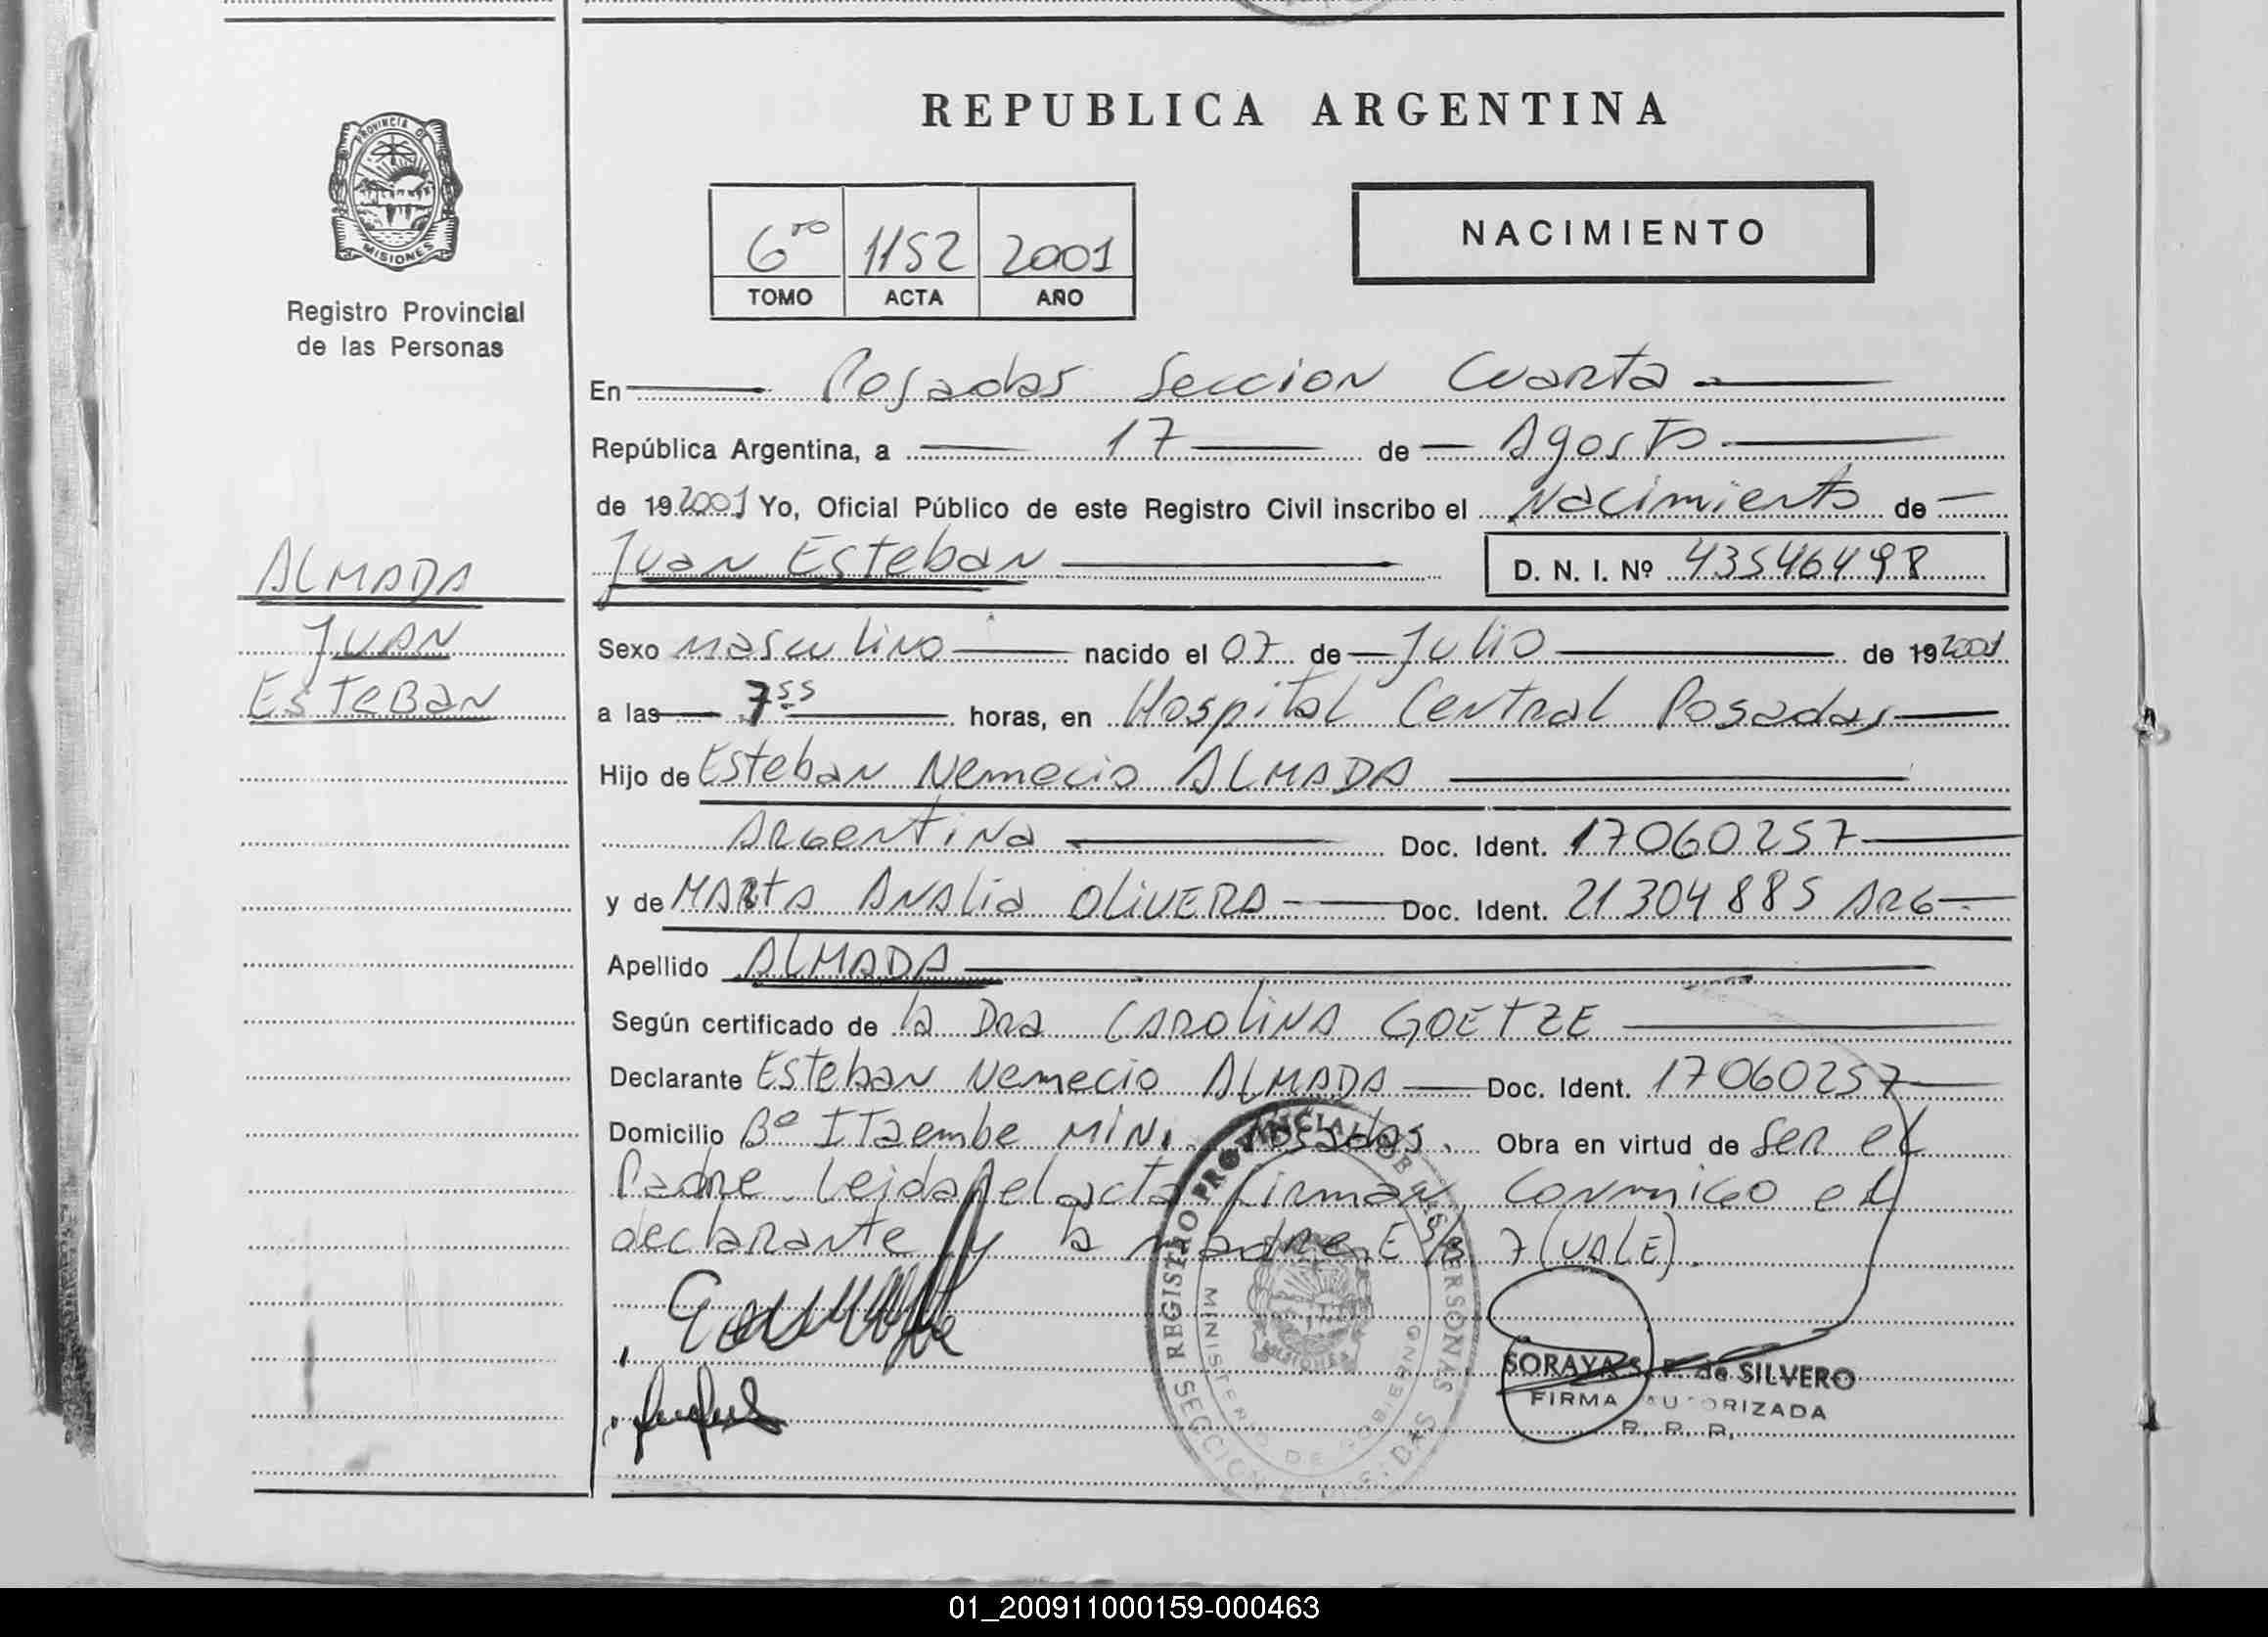 REPUBLICA ARGENTINA
PROVINCIA D
MISIONES
Registro Provincial
de las Personas
6to 1152 2001
TOMO ACTA AÑO
NACIMIENTO
En Posadas Seccion Cuarta
República Argentina, a 17 de Agosto
de 19 2001 Yo, Oficial Público de este Registro Civil inscribo el Nacimiento de
Juan Esteban D. N. I. Nº 43546498
ALMADA
JUAN
ESTEBAN
Sexo masculino nacido el 07 de Julio de 19 2001
a las 7 55 horas, en Hospital Central Posadas
Hijo de Esteban Nemecio ALMADA
Argentina Doc. Ident. 17060257
y de MARTA ANALIA OLIVERA Doc. Ident. 21304885 ARG
Apellido ALMADA
Según certificado de la Dra CAROLINA GOETZE
Declarante Esteban Nemecio ALMADA Doc. Ident. 17060257
Domicilio Bº ITaembe MINI. Posadas. Obra en virtud de ser el
Padre. Leida el acta firman conmigo el
declarante y la madre. E S/B. 7 (VALE).
REGISTRO PROVINCIAL DE LAS PERSONAS
MINISTERIO DE GOBIERNO
SECCION
SORAYA S. F. de SILVERO
FIRMA AUTORIZADA
R. P. P.
01_200911000159-000463